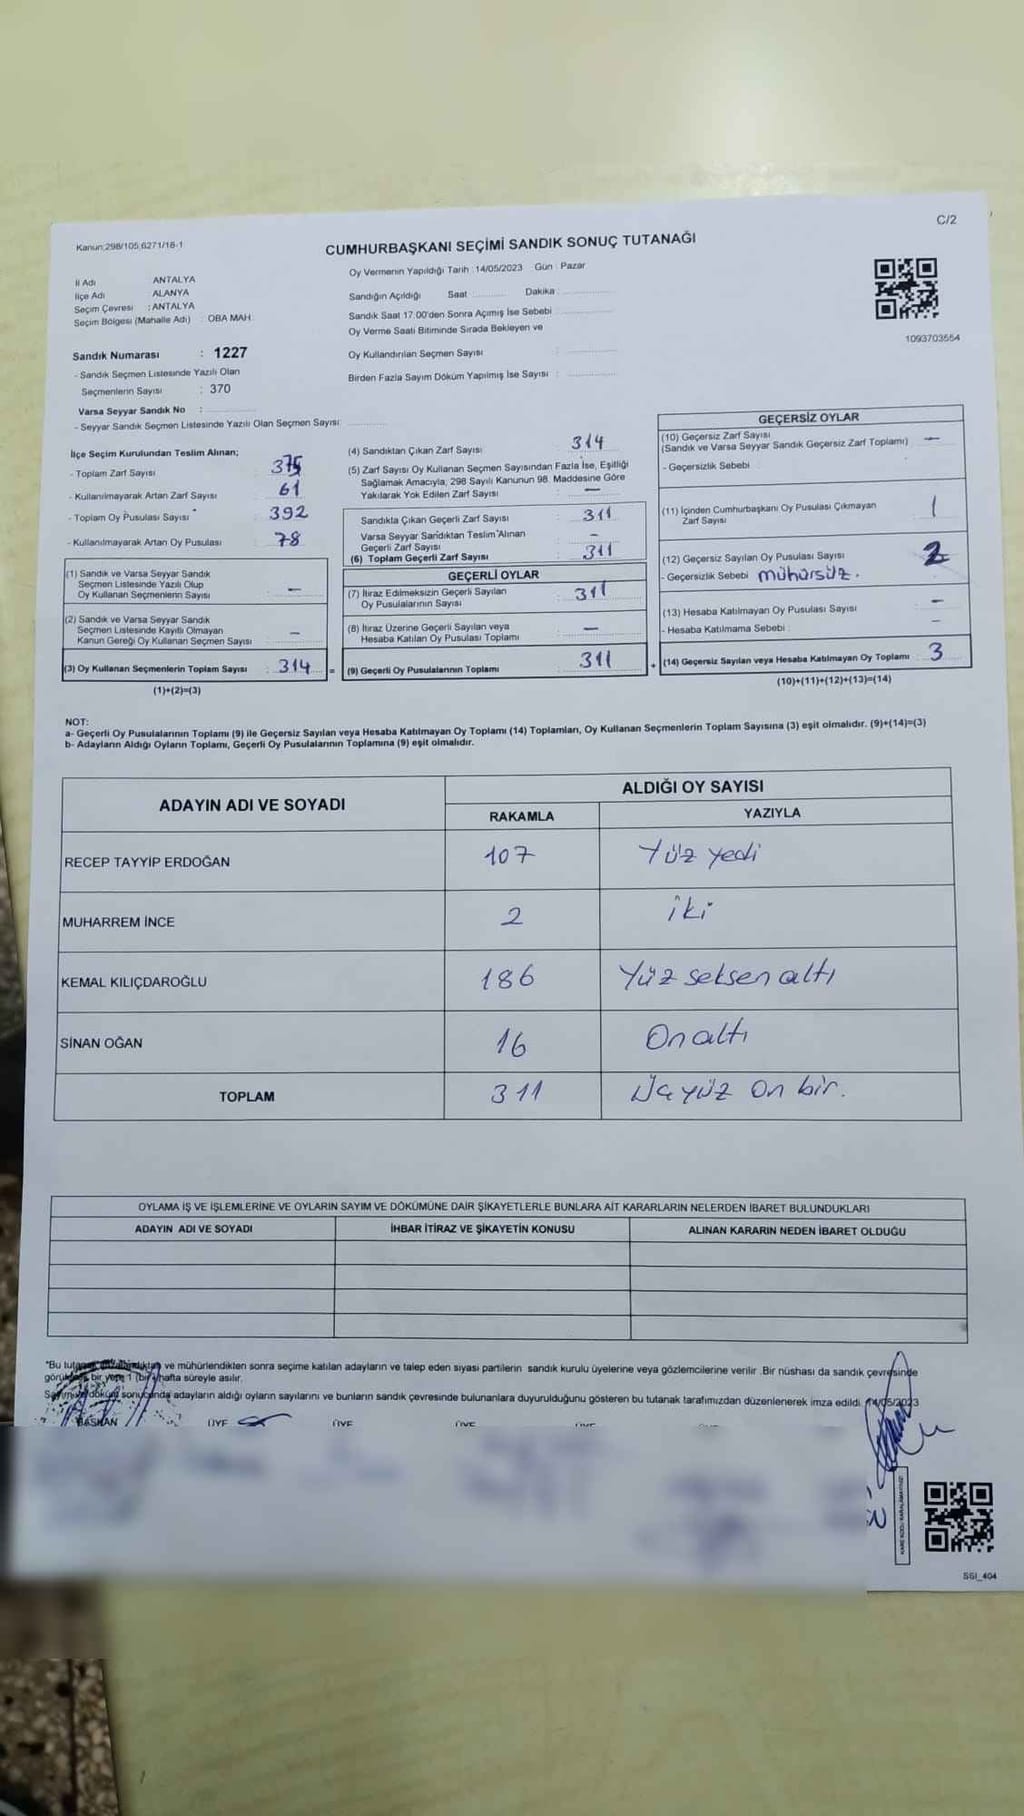 C/2
Kanun;298/105,6271/18-1
CUMHURBAŞKANI SEÇİMİ SANDIK SONUÇ TUTANAĞI
Oy Vermenin Yapıldığı Tarih : 14/05/2023 Gün : Pazar
İl Adı ANTALYA
İlçe Adı ALANYA
Seçim Çevresi : ANTALYA
Seçim Bölgesi (Mahalle Adı) : OBA MAH.
Sandığın Açıldığı Saat Dakika
Sandık Saat 17:00'den Sonra Açımış İse Sebebi
Oy Verme Saati Bitiminde Sırada Bekleyen ve
Oy Kullandırılan Seçmen Sayısı
Birden Fazla Sayım Döküm Yapılmış İse Sayısı :
1093703554
Sandık Numarası : 1227
- Sandık Seçmen Listesinde Yazılı Olan
Seçmenlerin Sayısı : 370
Varsa Seyyar Sandık No :
- Seyyar Sandık Seçmen Listesinde Yazılı Olan Seçmen Sayısı:
İlçe Seçim Kurulundan Teslim Alınan;
- Toplam Zarf Sayısı 375
- Kullanılmayarak Artan Zarf Sayısı 61
- Toplam Oy Pusulası Sayısı 392
- Kullanılmayarak Artan Oy Pusulası 78
(1) Sandık ve Varsa Seyyar Sandık
Seçmen Listesinde Yazılı Olup
Oy Kullanan Seçmenlerin Sayısı : —
(2) Sandık ve Varsa Seyyar Sandık
Seçmen Listesinde Kayıtlı Olmayan
Kanun Gereği Oy Kullanan Seçmen Sayısı —
(3) Oy Kullanan Seçmenlerin Toplam Sayısı : 314 =
(1)+(2)=(3)
(4) Sandıktan Çıkan Zarf Sayısı : 314
(5) Zarf Sayısı Oy Kullanan Seçmen Sayısından Fazla İse, Eşitliği
Sağlamak Amacıyla, 298 Sayılı Kanunun 98. Maddesine Göre
Yakılarak Yok Edilen Zarf Sayısı : —
Sandıkta Çıkan Geçerli Zarf Sayısı : 311
Varsa Seyyar Sandıktan Teslim Alınan
Geçerli Zarf Sayısı –
(6) Toplam Geçerli Zarf Sayısı : 311
GEÇERLİ OYLAR
(7) İtiraz Edilmeksizin Geçerli Sayılan
Oy Pusulalarının Sayısı : 311
(8) İtiraz Üzerine Geçerli Sayılan veya
Hesaba Katılan Oy Pusulası Toplamı : —
(9) Geçerli Oy Pusulalarının Toplamı : 311 +
GEÇERSİZ OYLAR
(10) Geçersiz Zarf Sayısı
(Sandık ve Varsa Seyyar Sandık Geçersiz Zarf Toplamı) : —
- Geçersizlik Sebebi
(11) İçinden Cumhurbaşkanı Oy Pusulası Çıkmayan
Zarf Sayısı 1
(12) Geçersiz Sayılan Oy Pusulası Sayısı : 2
- Geçersizlik Sebebi mühürsüz.
(13) Hesaba Katılmayan Oy Pusulası Sayısı –
- Hesaba Katılmama Sebebi : –
(14) Geçersiz Sayılan veya Hesaba Katılmayan Oy Toplamı : 3
(10)+(11)+(12)+(13)=(14)
NOT:
a- Geçerli Oy Pusulalarının Toplamı (9) ile Geçersiz Sayılan veya Hesaba Katılmayan Oy Toplamı (14) Toplamları, Oy Kullanan Seçmenlerin Toplam Sayısına (3) eşit olmalıdır. (9)+(14)=(3)
b- Adayların Aldığı Oyların Toplamı, Geçerli Oy Pusulalarının Toplamına (9) eşit olmalıdır.
ADAYIN ADI VE SOYADI ALDIĞI OY SAYISI
RAKAMLA YAZIYLA
RECEP TAYYİP ERDOĞAN 107 Yüz yedi
MUHARREM İNCE 2 iki
KEMAL KILIÇDAROĞLU 186 Yüz seksen altı
SİNAN OĞAN 16 On altı
TOPLAM 311 Üçyüz on bir.
OYLAMA İŞ VE İŞLEMLERİNE VE OYLARIN SAYIM VE DÖKÜMÜNE DAİR ŞİKAYETLERLE BUNLARA AİT KARARLARIN NELERDEN İBARET BULUNDUKLARI
ADAYIN ADI VE SOYADI İHBAR İTİRAZ VE ŞİKAYETİN KONUSU ALINAN KARARIN NEDEN İBARET OLDUĞU
ve mühürlendikten sonra seçime katılan adayların ve talep eden siyasi partilerin sandık kurulu üyelerine veya gözlemcilerine verilir .Bir nüshası da sandık çevresinde
bir yere 1 (bir) hafta süreyle asılır.
adayların aldığı oyların sayılarını ve bunların sandık çevresinde bulunanlara duyurulduğunu gösteren bu tutanak tarafımızdan düzenlenerek imza edildi. 14/05/2023
BAŞKAN ÜYE ÜYE ÜYE
SGI_404